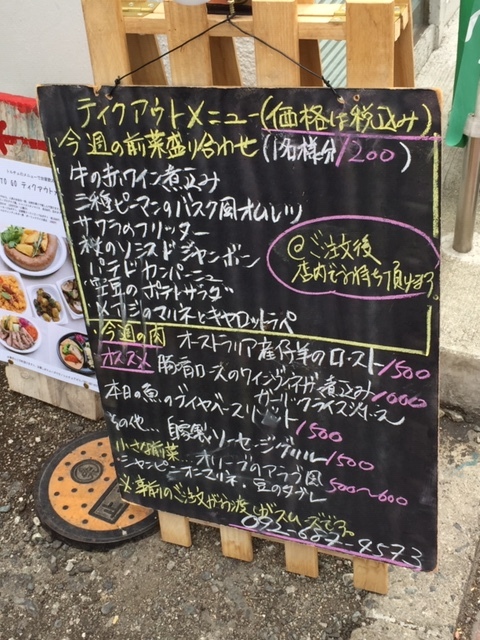 テイクアウトメニュー(価格は税込み)
今週の前菜盛り合わせ(1名様分1200)
牛の赤ワイン煮込み
三種ピーマンのバスク風オムレツ
サワラのフリッター
のリエスリンジャンボン
パテドカンパーニュ
空豆のポテトサラダ
のマリネとキャロットラペ
@ご注文後
店内でお待ち頂けます。
今週の肉 オーストラリア産仔羊のロースト1500
オススメ 豚肩ロースのワインヴィネガー煮込み1000
本日の魚のブイヤベースリゾット 1500
その他… 自家製ソーセージグリル1500
小さな前菜…オリーブのアラブ風 500~600
シャンピニオンマリネ・豆のタブレ
※事前のご注文がお渡しがスムーズです。